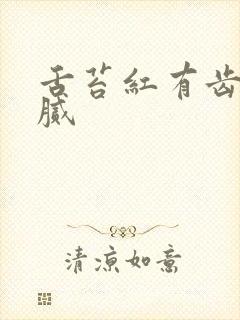 舌苔红有齿
腻
清凉如意